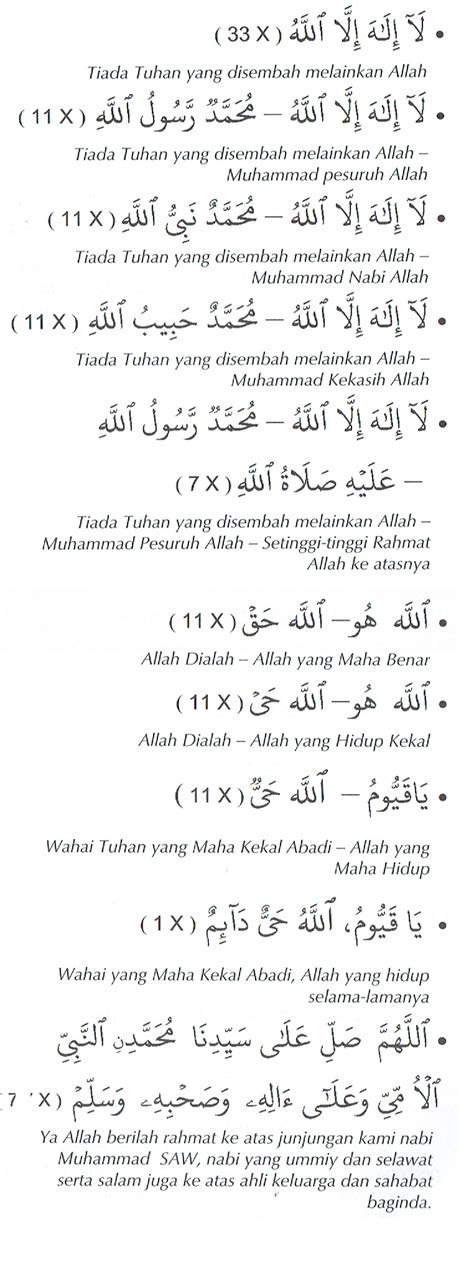 • لَآ إِلَٰهَ إِلَّا ٱللَّهُ ( 33 X )
Tiada Tuhan yang disembah melainkan Allah
• لَآ إِلَٰهَ إِلَّا ٱللَّهُ – مُحَمَّدٌ رَّسُولُ ٱللَّهِ ( 11 X )
Tiada Tuhan yang disembah melainkan Allah –
Muhammad pesuruh Allah
• لَآ إِلَٰهَ إِلَّا ٱللَّهُ – مُحَمَّدٌ نَبِيُّ ٱللَّهِ ( 11 X )
Tiada Tuhan yang disembah melainkan Allah –
Muhammad Nabi Allah
• لَآ إِلَٰهَ إِلَّا ٱللَّهُ – مُحَمَّدٌ حَبِيبُ ٱللَّهِ ( 11 X )
Tiada Tuhan yang disembah melainkan Allah –
Muhammad Kekasih Allah
• لَآ إِلَٰهَ إِلَّا ٱللَّهُ – مُحَمَّدٌ رَّسُولُ ٱللَّهِ
– عَلَيْهِ صَلَاةُ ٱللَّهِ ( 7 X )
Tiada Tuhan yang disembah melainkan Allah –
Muhammad Pesuruh Allah – Setinggi-tinggi Rahmat
Allah ke atasnya
• ٱللَّه هُو– ٱللَّه حَقْ ( 11 X )
Allah Dialah – Allah yang Maha Benar
• ٱللَّه هُو– ٱللَّه حَىْ ( 11 X )
Allah Dialah – Allah yang Hidup Kekal
• يَاقَيُّومُ – ٱللَّه حَىٌّ ( 11 X )
Wahai Tuhan yang Maha Kekal Abadi – Allah yang
Maha Hidup
• يَا قَيُّومُ، ٱللَّهُ حَىٌّ دَآئِمٌ ( 1 X )
Wahai yang Maha Kekal Abadi, Allah yang hidup
selama-lamanya
• ٱللَّهُمَّ صَلِّ عَلَىٰ سَيِّدِنَا مُحَمَّدِنِ ٱلنَّبِيِّ
ٱلْأُمِّيِّ وَعَلَىٰٓ ءَالِهِۦ وَصَحْبِهِۦ وَسَلِّمْ ( 7 X )
Ya Allah berilah rahmat ke atas junjungan kami nabi
Muhammad SAW, nabi yang ummiy dan selawat
serta salam juga ke atas ahli keluarga dan sahabat
baginda.